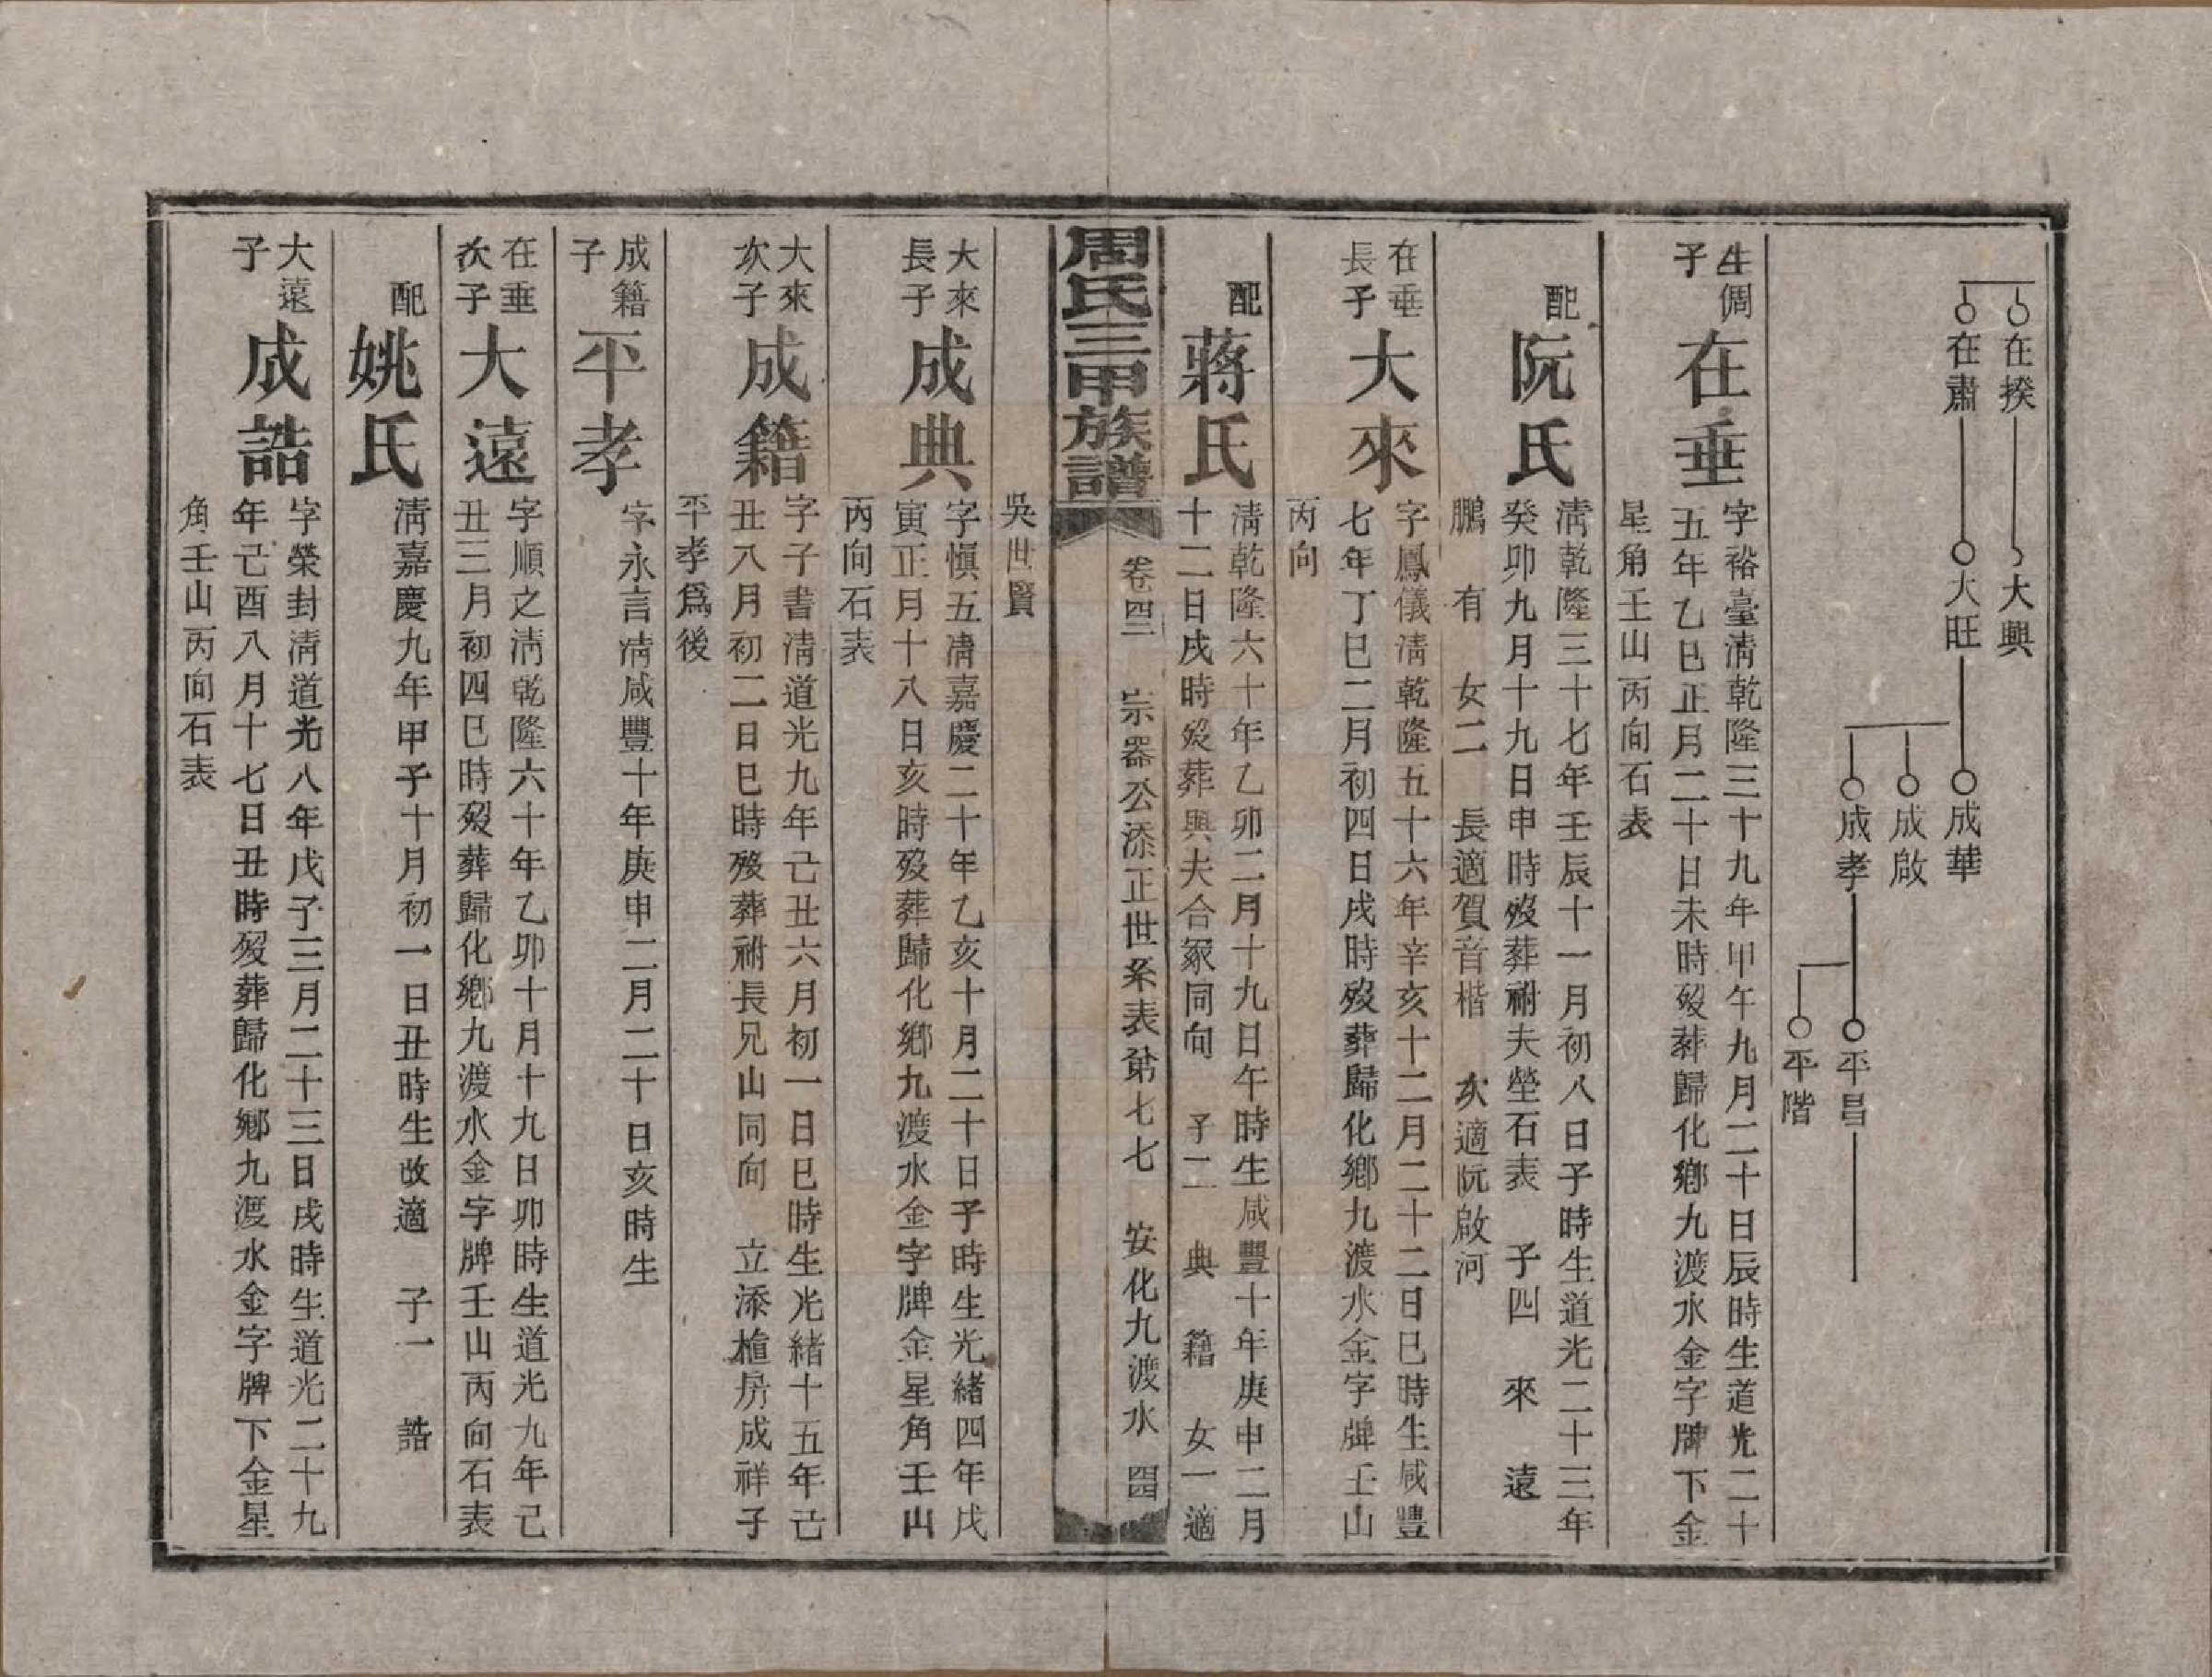 在揆
大興
在肅
大旺
成華
成啟
成孝
平昌
平階
生倜
子
在垂
字裕臺清乾隆三十九年甲午九月二十日辰時生道光二十
五年乙巳正月二十日未時歿葬歸化鄉九渡水金字牌下金
星角壬山丙向石表
配
阮氏
清乾隆三十七年壬辰十一月初八日子時生道光二十三年
癸卯九月十九日申時歿葬祔夫塋石表 子四 來 遠
鵬 有 女二 長適賀音楷 次適阮啟河
在垂
長子
大來
字鳳儀清乾隆五十六年辛亥十二月二十二日巳時生咸豐
七年丁巳二月初四日戌時歿葬歸化鄉九渡水金字牌壬山
丙向
配
蔣氏
清乾隆六十年乙卯二月十九日午時生咸豐十年庚申二月
十二日戌時歿葬與夫合冢同向 子二 典 籍 女一適
周氏三甲族譜
卷四三 崇器公添正世系表第七七 安化九渡水 四四
吳世賢
大來
長子
成典
字愼五清嘉慶二十年乙亥十月二十日子時生光緒四年戊
寅正月十八日亥時歿葬歸化鄉九渡水金字牌金星角壬山
丙向石表
大來
次子
成籍
字子書清道光九年己丑六月初一日巳時生光緒十五年己
丑八月初二日巳時歿葬祔長兄山同向 立添植房成祥子
平孝爲後
成籍
子
平孝
字永言清咸豐十年庚申二月二十日亥時生
在垂
次子
大遠
字順之清乾隆六十年乙卯十月十九日卯時生道光九年己
丑三月初四巳時歿葬歸化鄉九渡水金字牌壬山丙向石表
配
姚氏
清嘉慶九年甲子十月初一日丑時生改適 子一 誥
大遠
子
成誥
字榮封清道光八年戊子三月二十三日戌時生道光二十九
年己酉八月十七日丑時歿葬歸化鄉九渡水金字牌下金星
角壬山丙向石表